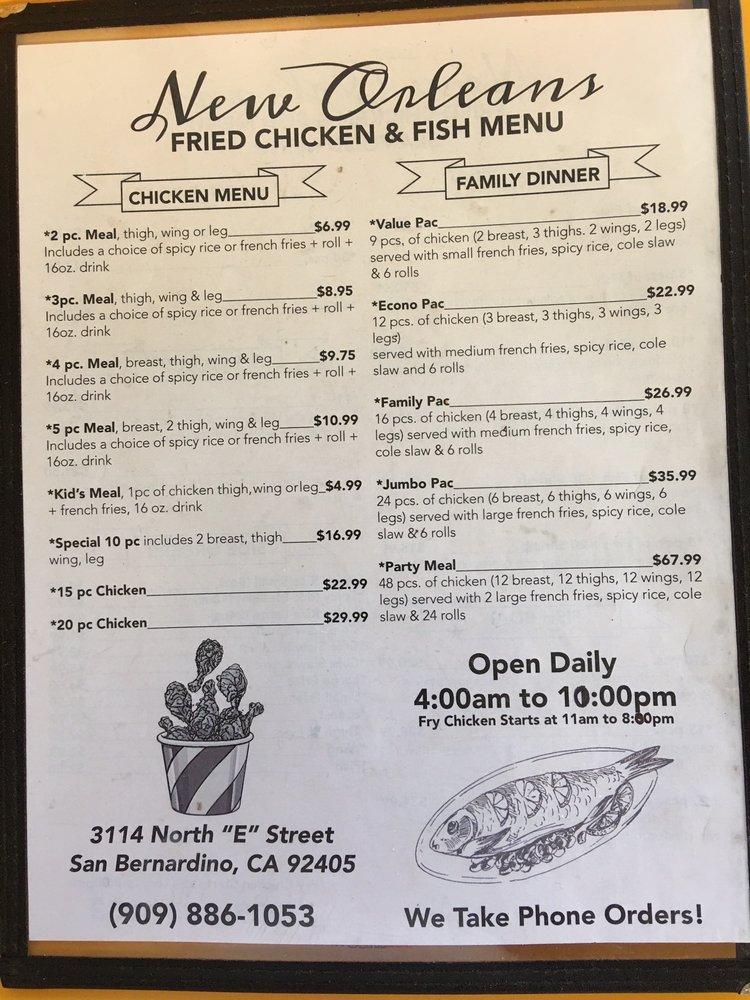 New Orleans
FRIED CHICKEN & FISH MENU
CHICKEN MENU
*2 pc. Meal, thigh, wing or leg $6.99
Includes a choice of spicy rice or french fries + roll +
16oz. drink
*3pc. Meal, thigh, wing & leg $8.95
Includes a choice of spicy rice or french fries + roll +
16oz. drink
*4 pc. Meal, breast, thigh, wing & leg $9.75
Includes a choice of spicy rice or french fries + roll +
16oz. drink
*5 pc Meal, breast, 2 thigh, wing & leg $10.99
Includes a choice of spicy rice or french fries + roll +
16oz. drink
*Kid's Meal, 1pc of chicken thigh, wing or leg $4.99
+ french fries, 16 oz. drink
*Special 10 pc includes 2 breast, thigh $16.99
wing, leg
*15 pc Chicken $22.99
*20 pc Chicken $29.99
FAMILY DINNER
*Value Pac $18.99
9 pcs. of chicken (2 breast, 3 thighs. 2 wings, 2 legs)
served with small french fries, spicy rice, cole slaw
& 6 rolls
*Econo Pac $22.99
12 pcs. of chicken (3 breast, 3 thighs, 3 wings, 3
legs)
served with medium french fries, spicy rice, cole
slaw and 6 rolls
*Family Pac $26.99
16 pcs. of chicken (4 breast, 4 thighs, 4 wings, 4
legs) served with medium french fries, spicy rice,
cole slaw & 6 rolls
*Jumbo Pac $35.99
24 pcs. of chicken (6 breast, 6 thighs, 6 wings, 6
legs) served with large french fries, spicy rice, cole
slaw & 6 rolls
*Party Meal $67.99
48 pcs. of chicken (12 breast, 12 thighs, 12 wings, 12
legs) served with 2 large french fries, spicy rice, cole
slaw & 24 rolls
Open Daily
4:00am to 10:00pm
Fry Chicken Starts at 11am to 8:00pm
3114 North "E" Street
San Bernardino, CA 92405
(909) 886-1053
We Take Phone Orders!